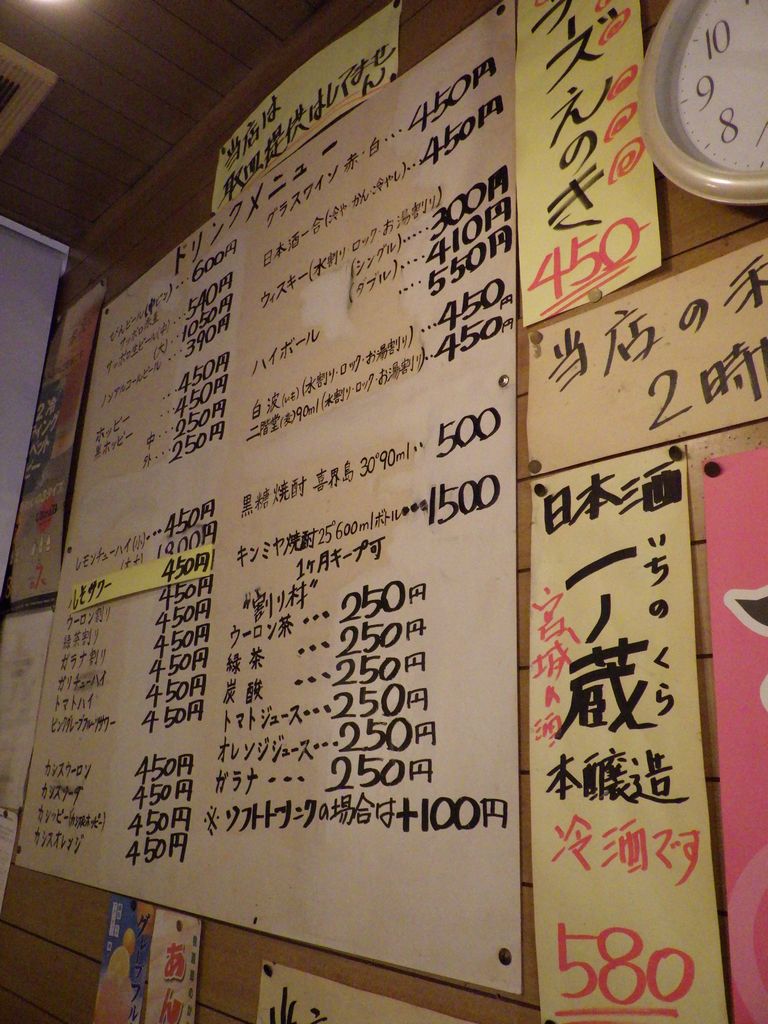 当店は
取皿提供はしてません。
ドリンクメニュー
600円
540円
1050円
ノンアルコールビール…390円
ホッピー…450円
黒ホッピー…450円
中…250円
外…250円
レモンチューハイ(小)…450円
450円
ウーロン割り 450円
緑茶割り 450円
ガラナ割り 450円
ガリチューハイ 450円
トマトハイ 450円
ピンクグレープフルーツサワー 450円
カシスウーロン 450円
カシスソーダ 450円
カシッピー(カシス&ホッピー) 450円
カシスオレンジ 450円
グラスワイン 赤・白…450円
日本酒一合(冷や・かん・冷やし)…450円
ウィスキー(水割り・ロック・お湯割り)
(シングル)…300円
ダブル)…410円
…550円
ハイボール…450円
白波(いも)(水割り・ロック・お湯割り)…450円
二階堂(麦)90ml(水割り・ロック・お湯割り)
黒糖焼酎 喜界島 30°90ml…500
キンミヤ焼酎25°600mlボトル…1500
1ヶ月キープ可
"割り材"
ウーロン茶…250円
緑茶…250円
炭酸…250円
トマトジュース…250円
オレンジジュース…250円
ガラナ…250円
※ソフトドリンクの場合は+100円
ーズえのき
450
10
9
8
当店の
2時
日本酒
一ノ蔵
いちのくら
宮城の酒
本醸造
冷酒です
580
グレープフル
あん